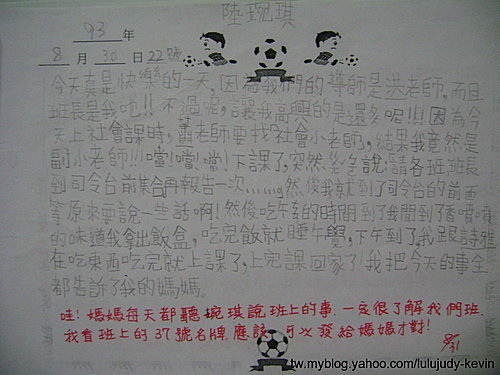 陸琬琪
93年
8月30日22號
今天真是快樂的一天,因為我們的導師是洪老師。而且
班長是我吔!!不過呢,讓我高興的是還多呢!!!因為今
天上社會課時,老師要找「社會小老師」,結果我竟然是
副小老師!!!噹!噹!噹!下課了,突然老師說:請各班班長
到司令台前集合再報告一次......然後我就到了司令台的前面
等原來要說一些話啊!然後吃午的時間到了我聞到了香噴噴
的味道我拿出飯盒,吃完飯就睡午覺,下午到了,我跟詩雅
在吃東西吃完就上課了,上完課回家了!我把今天的事全
都告訴了我的媽媽。
哇!媽媽每天都聽琬琪說班上的事.一定很了解我們班.
我看班上的37號名牌應該可以發給媽媽才對!
8/31
tw.myblog.yahoo.com/lulujudy-kevin